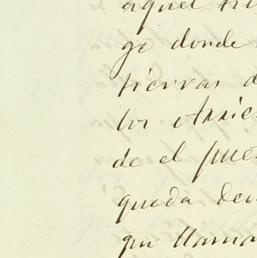 aquel
go donde
tierras d
los
de el pue
queda den
qu llama